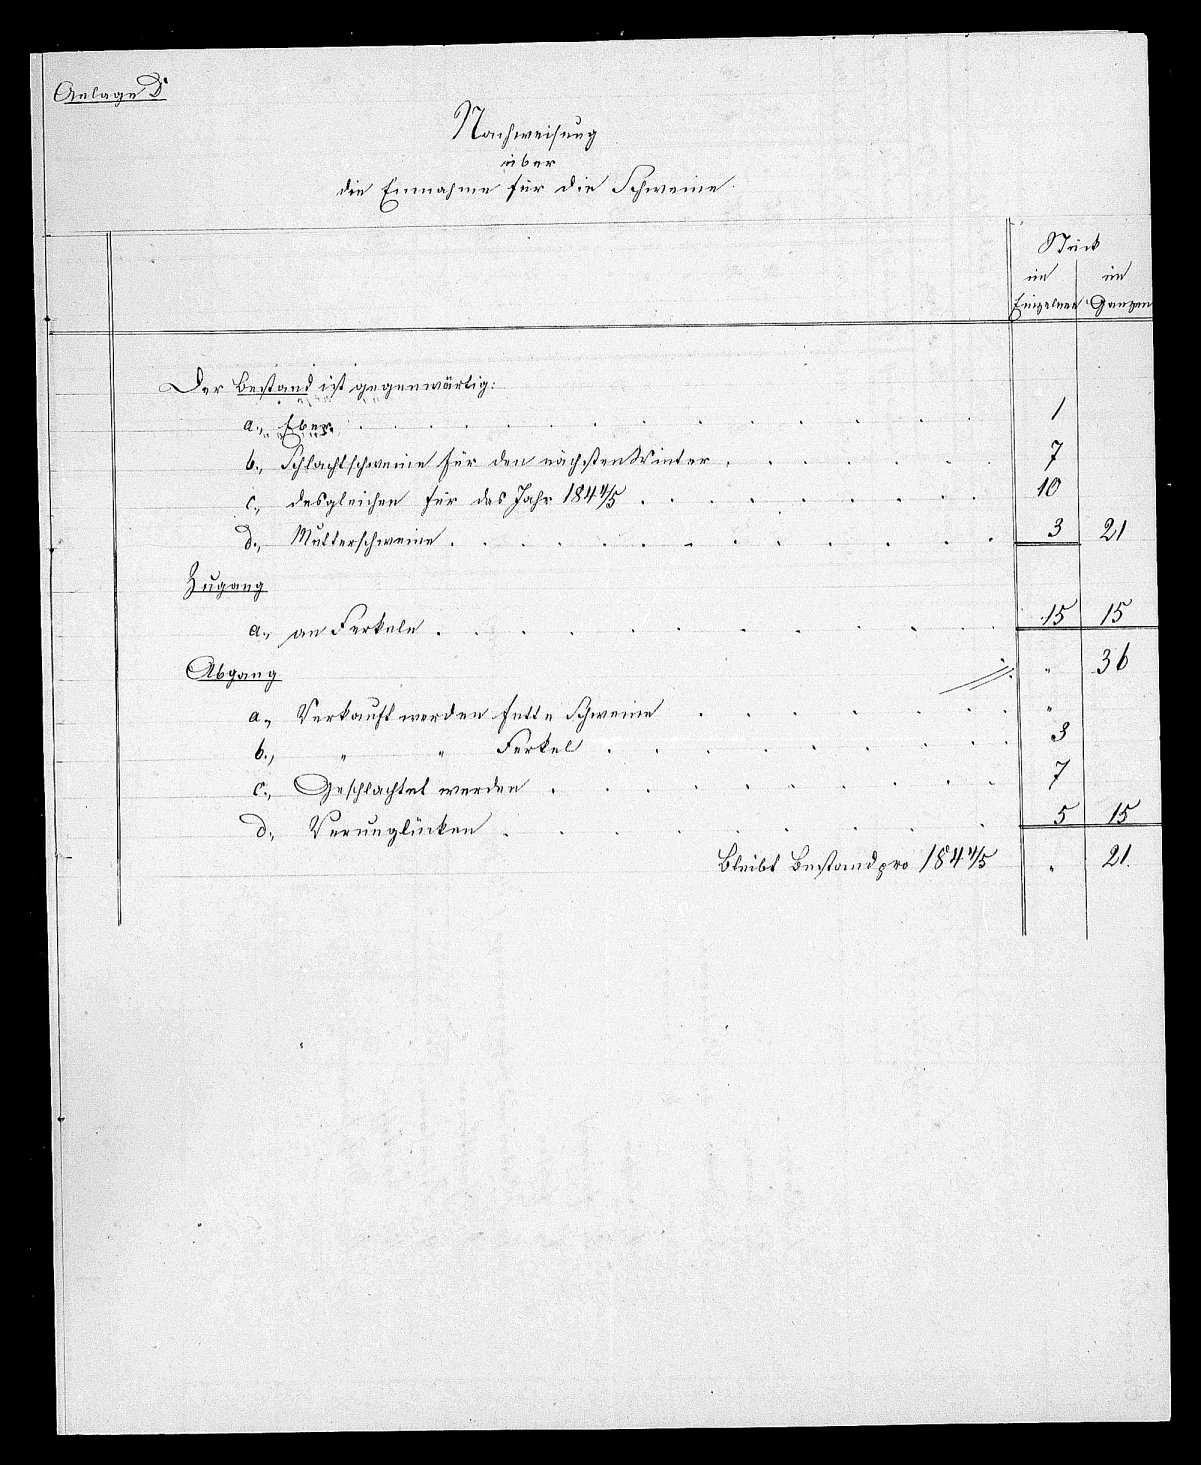 Anlage D
Nachweisung
über
die Einnahme für die Schweine.
Stück
im im
Einzelnen Ganzen
Der Bestand ist gegenwärtig:
a., Eber . . . . . . . . . . 1
b., Schlachtschweine für den nächsten Winter . . . . . . 7
c., desgleichen für das Jahr 184 4/5 . . . . . . . . 10
d., Mutterschweine . . . . . . . . . . . 3 21
Zugang
a., an Ferkeln . . . . . . . . . 15 15
Abgang " 36
a., Verkauft werden fette Schweine . . . . . . . "
b., " " Ferkel . . . . . . . . 3
c., Geschlachtet werden . . . . . . . . . 7
d., Verunglücken . . . . . . . . . 5 15
Bleibt Bestand pro 184 4/5 " 21.